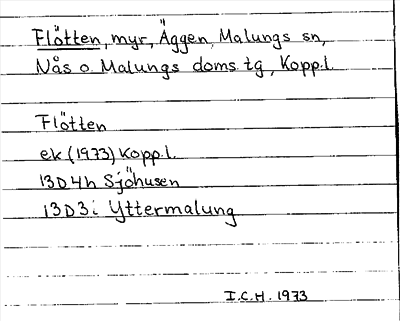 Flötten, myr, Äggen, Malungs sn,
Nås o. Malungs doms.tg, Kopp.l.
Flötten
ek (1973) Kopp.l.
13D4h Sjöhusen
13D3i Yttermalung
I.C.H. 1973